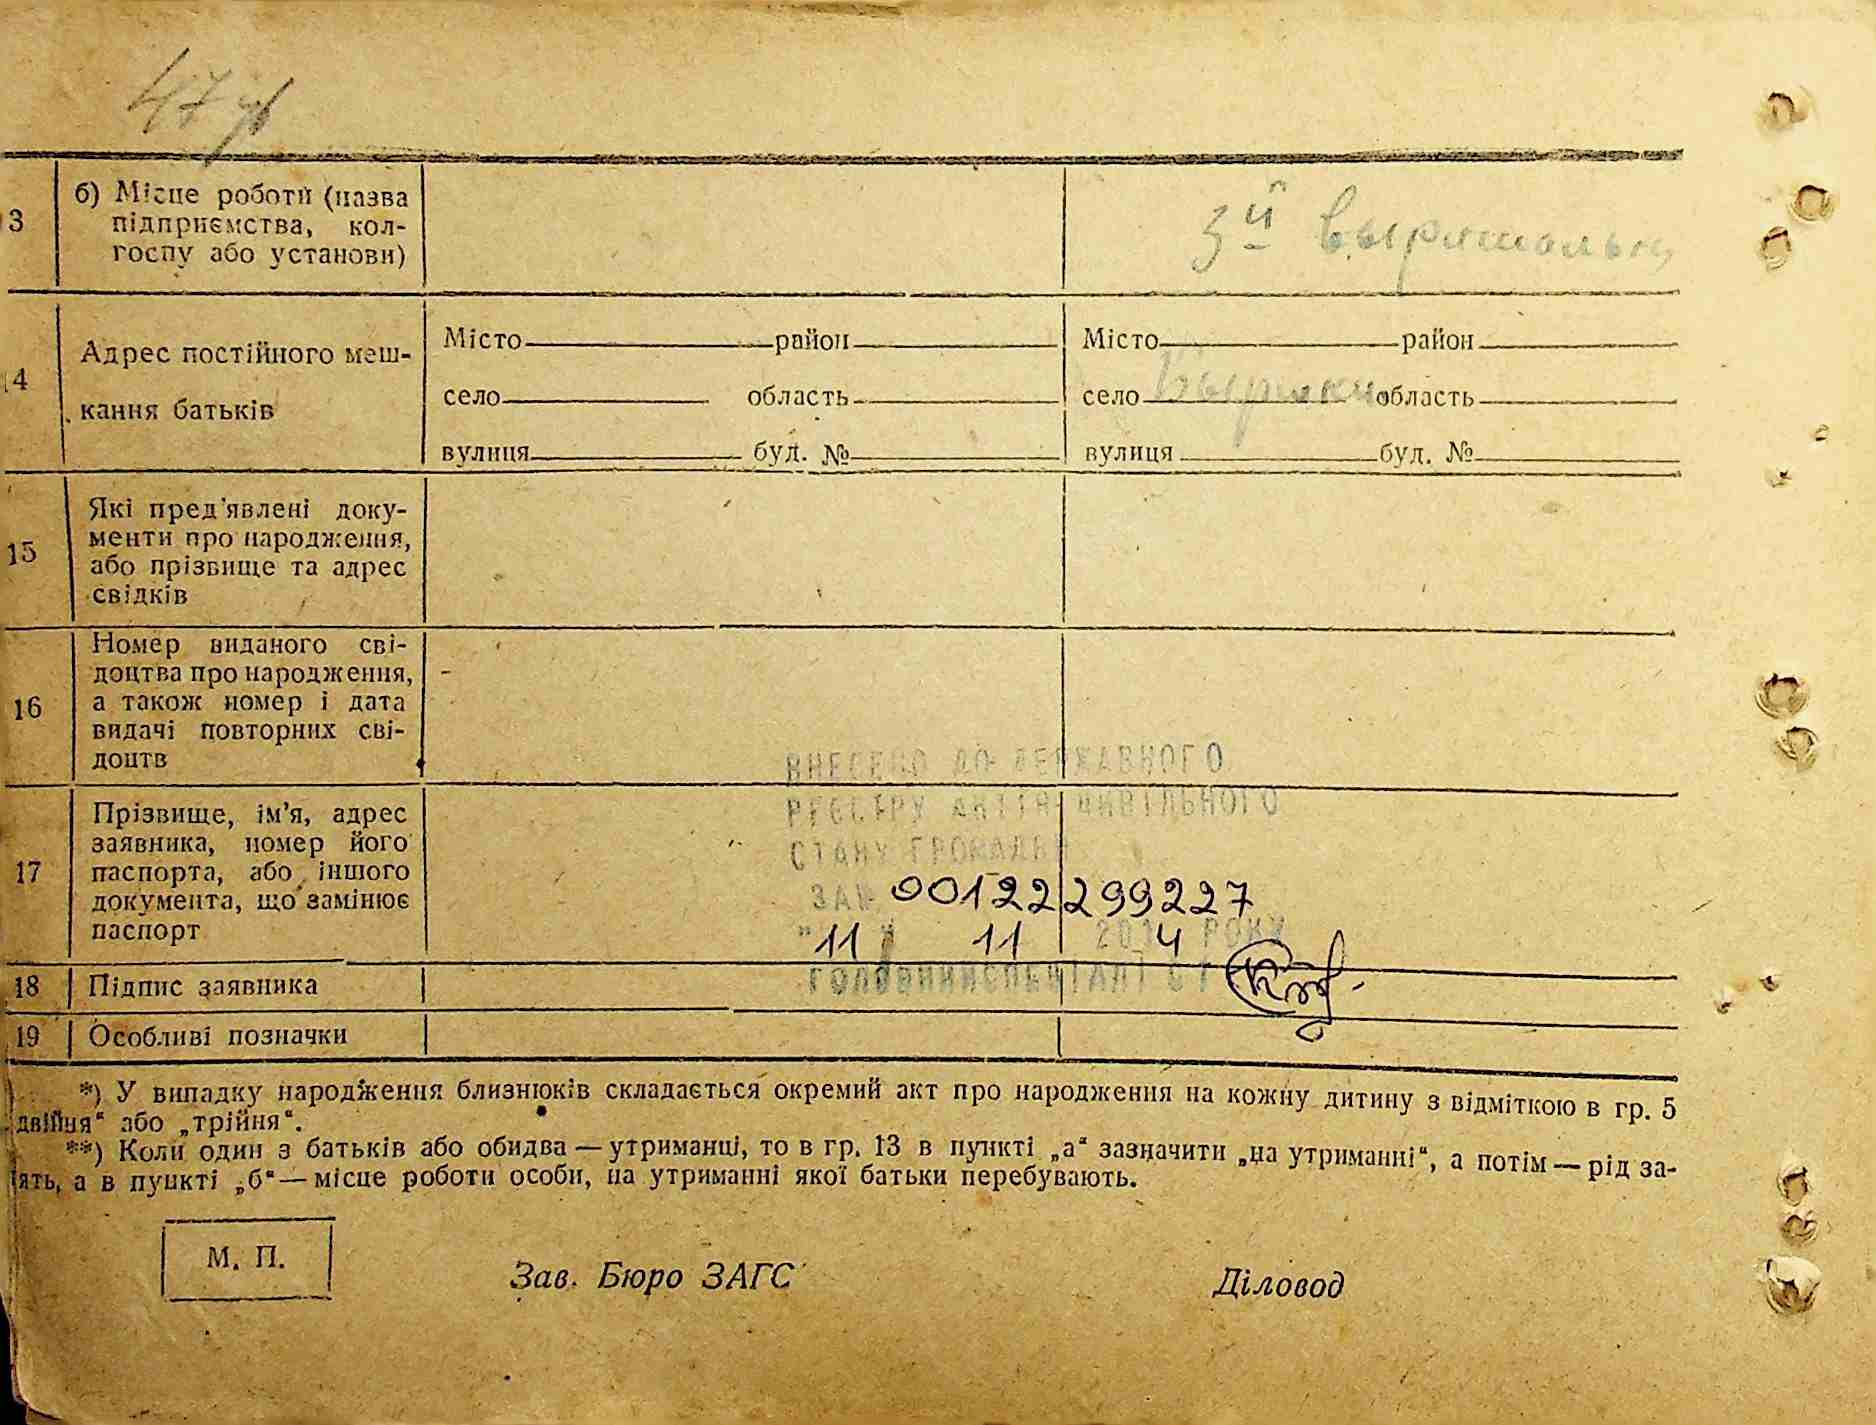 47
13 б) Місце роботи (назва
підприємства, кол-
госпу або установи)
3й
14 Адрес постійного меш-
кання батьків
Місто район Місто район
село область село область
вулиця буд. № вулиця буд. №
15 Які пред'явлені доку-
менти про народження,
або прізвище та адрес
свідків
16 Номер виданого сві-
доцтва про народження,
а також номер і дата
видачі повторних сві-
доцтв
ВНЕСЕНО ДО ДЕРЖАВНОГО
РЕЄСТРУ АКТІВ ЦИВІЛЬНОГО
СТАНУ ГРОМАДЯН
ЗА № 00122299227
"11" 11 2014 РОКУ
ГОЛОВНИЙ СПЕЦІАЛІСТ
17 Прізвище, ім'я, адрес
заявника, номер його
паспорта, або іншого
документа, що замінює
паспорт
18 Підпис заявника
19 Особливі позначки
*) У випадку народження близнюків складається окремий акт про народження на кожну дитину з відміткою в гр. 5
„двійня“ або „трійня“.
**) Коли один з батьків або обидва — утриманці, то в гр. 13 в пункті „а“ зазначити „на утриманні“, а потім — рід за-
нять, а в пункті „б“ — місце роботи особи, на утриманні якої батьки перебувають.
М. П.
Зав. Бюро ЗАГС Діловод